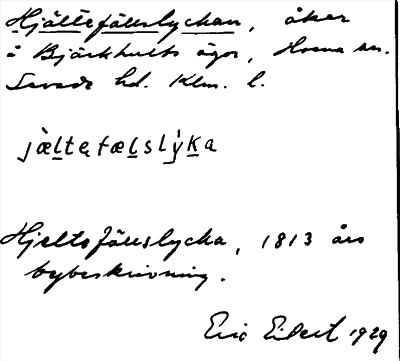 Hjältefällslyckan, åker
i Björkhults ägor, Horns sn.
hd. Klm. l.
jæltefælslýka
Hjeltefällslycka, 1813 års
bybeskrivning.
Eric Eilert 1929